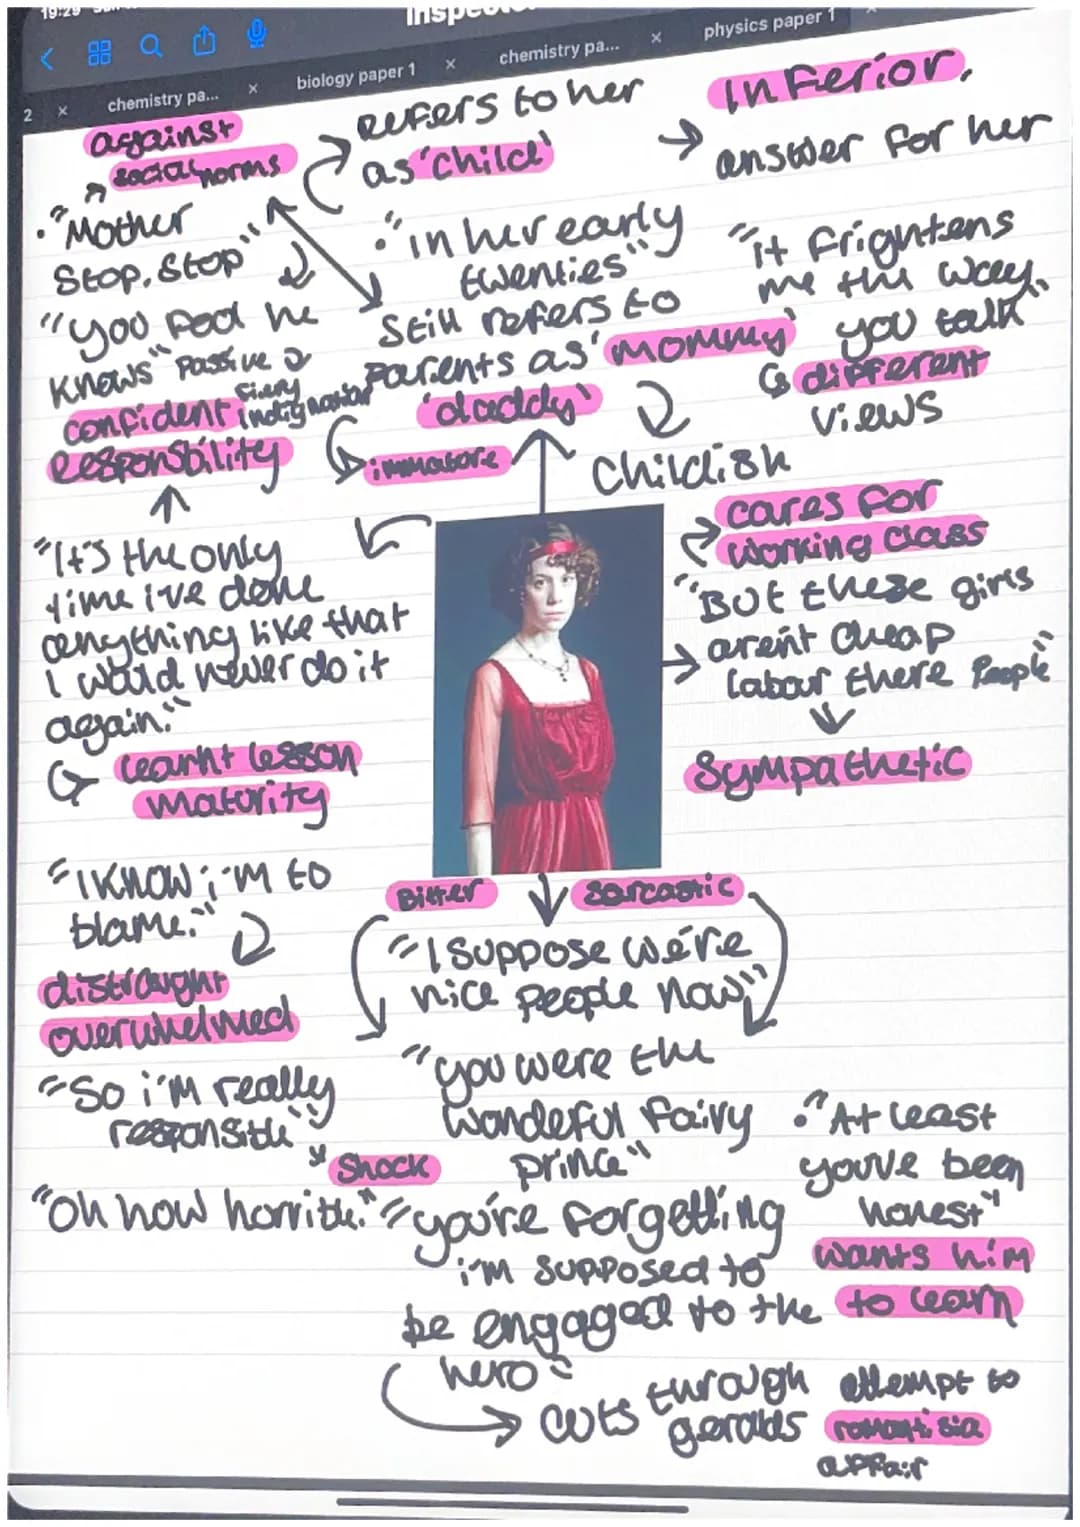 19:29
Inspector
2 × chemistry pa... × biology paper 1 × chemistry pa... × physics paper 1 ×
against
social norms
"Mother
Stop, Stop"
"you fool he
knows" Passive
confident fiery indignation
Responsibility
Refers to her
as 'child'
→ Inferior,
answer for her
"in her early
twenties"
Still refers to
Parents as 'mommy'
'daddy'
immature
Childish
"it frightens
me the way
you talk"
different
views
cares for
working class
"But these girls
aren't cheap
labour there People"
Sympathetic
"It's the only
time i've done
anything like that
I would never do it
again."
learnt lesson
maturity
"I KNOW i'm to
blame."
distraught
overwhelmed
"So i'm really
responsible"
Shock
"Oh how horrible."
Bitter
Sarcastic
"I suppose we're
nice People now"
"you were the
wonderful fairy
prince"
"you're forgetting
i'm supposed to
be engaged to the
hero"
cuts through
geralds
attempt to
romantisia
affair
"At least
you've been
honest"
wants him
to learn